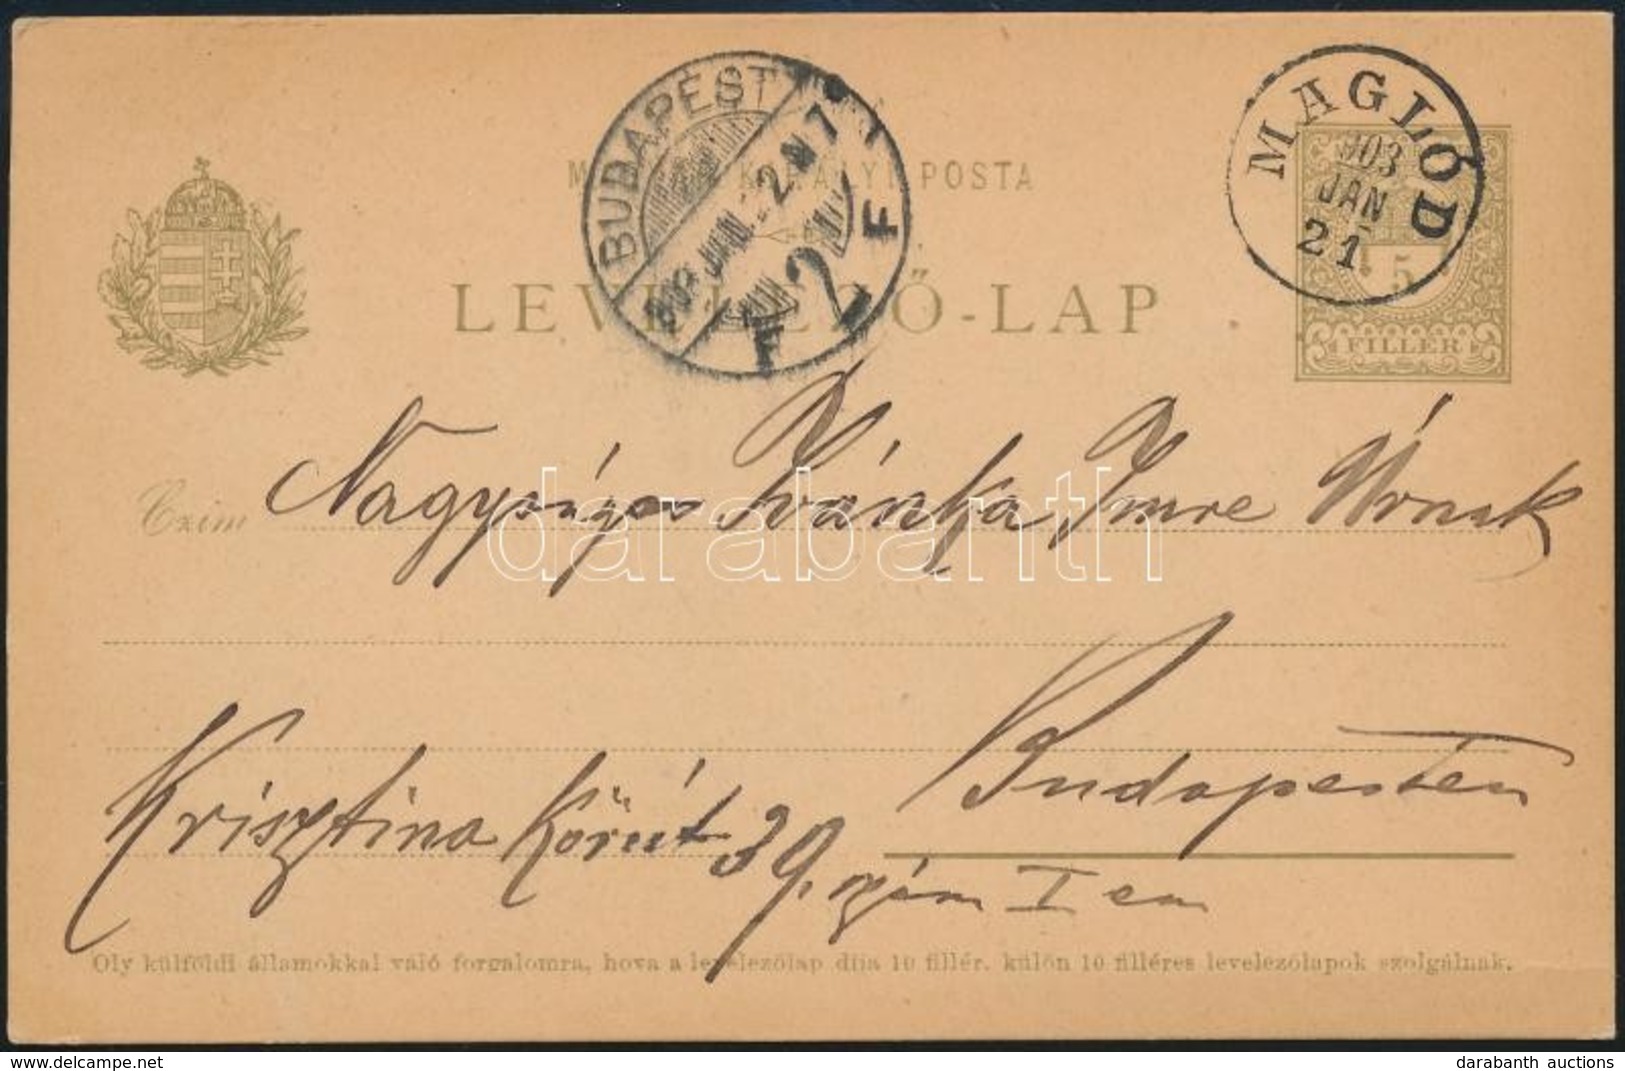 BUDAPEST
903 JAN. 22 N 7
F 2 F
MAGLÓD
903
JAN
21
KIRÁLYI POSTA
LEVELEZŐ-LAP
5
FILLÉR
Czim Nagyságos Ivánka Imre Úrnak
darabanth
Budapesten
Krisztina Körút 39. szám I em
Oly külföldi államokkal való forgalomra, hova a levelezőlap díja 10 fillér, külön 10 filléres levelezőlapok szolgálnak.
delcampe.net
darabanth auctions